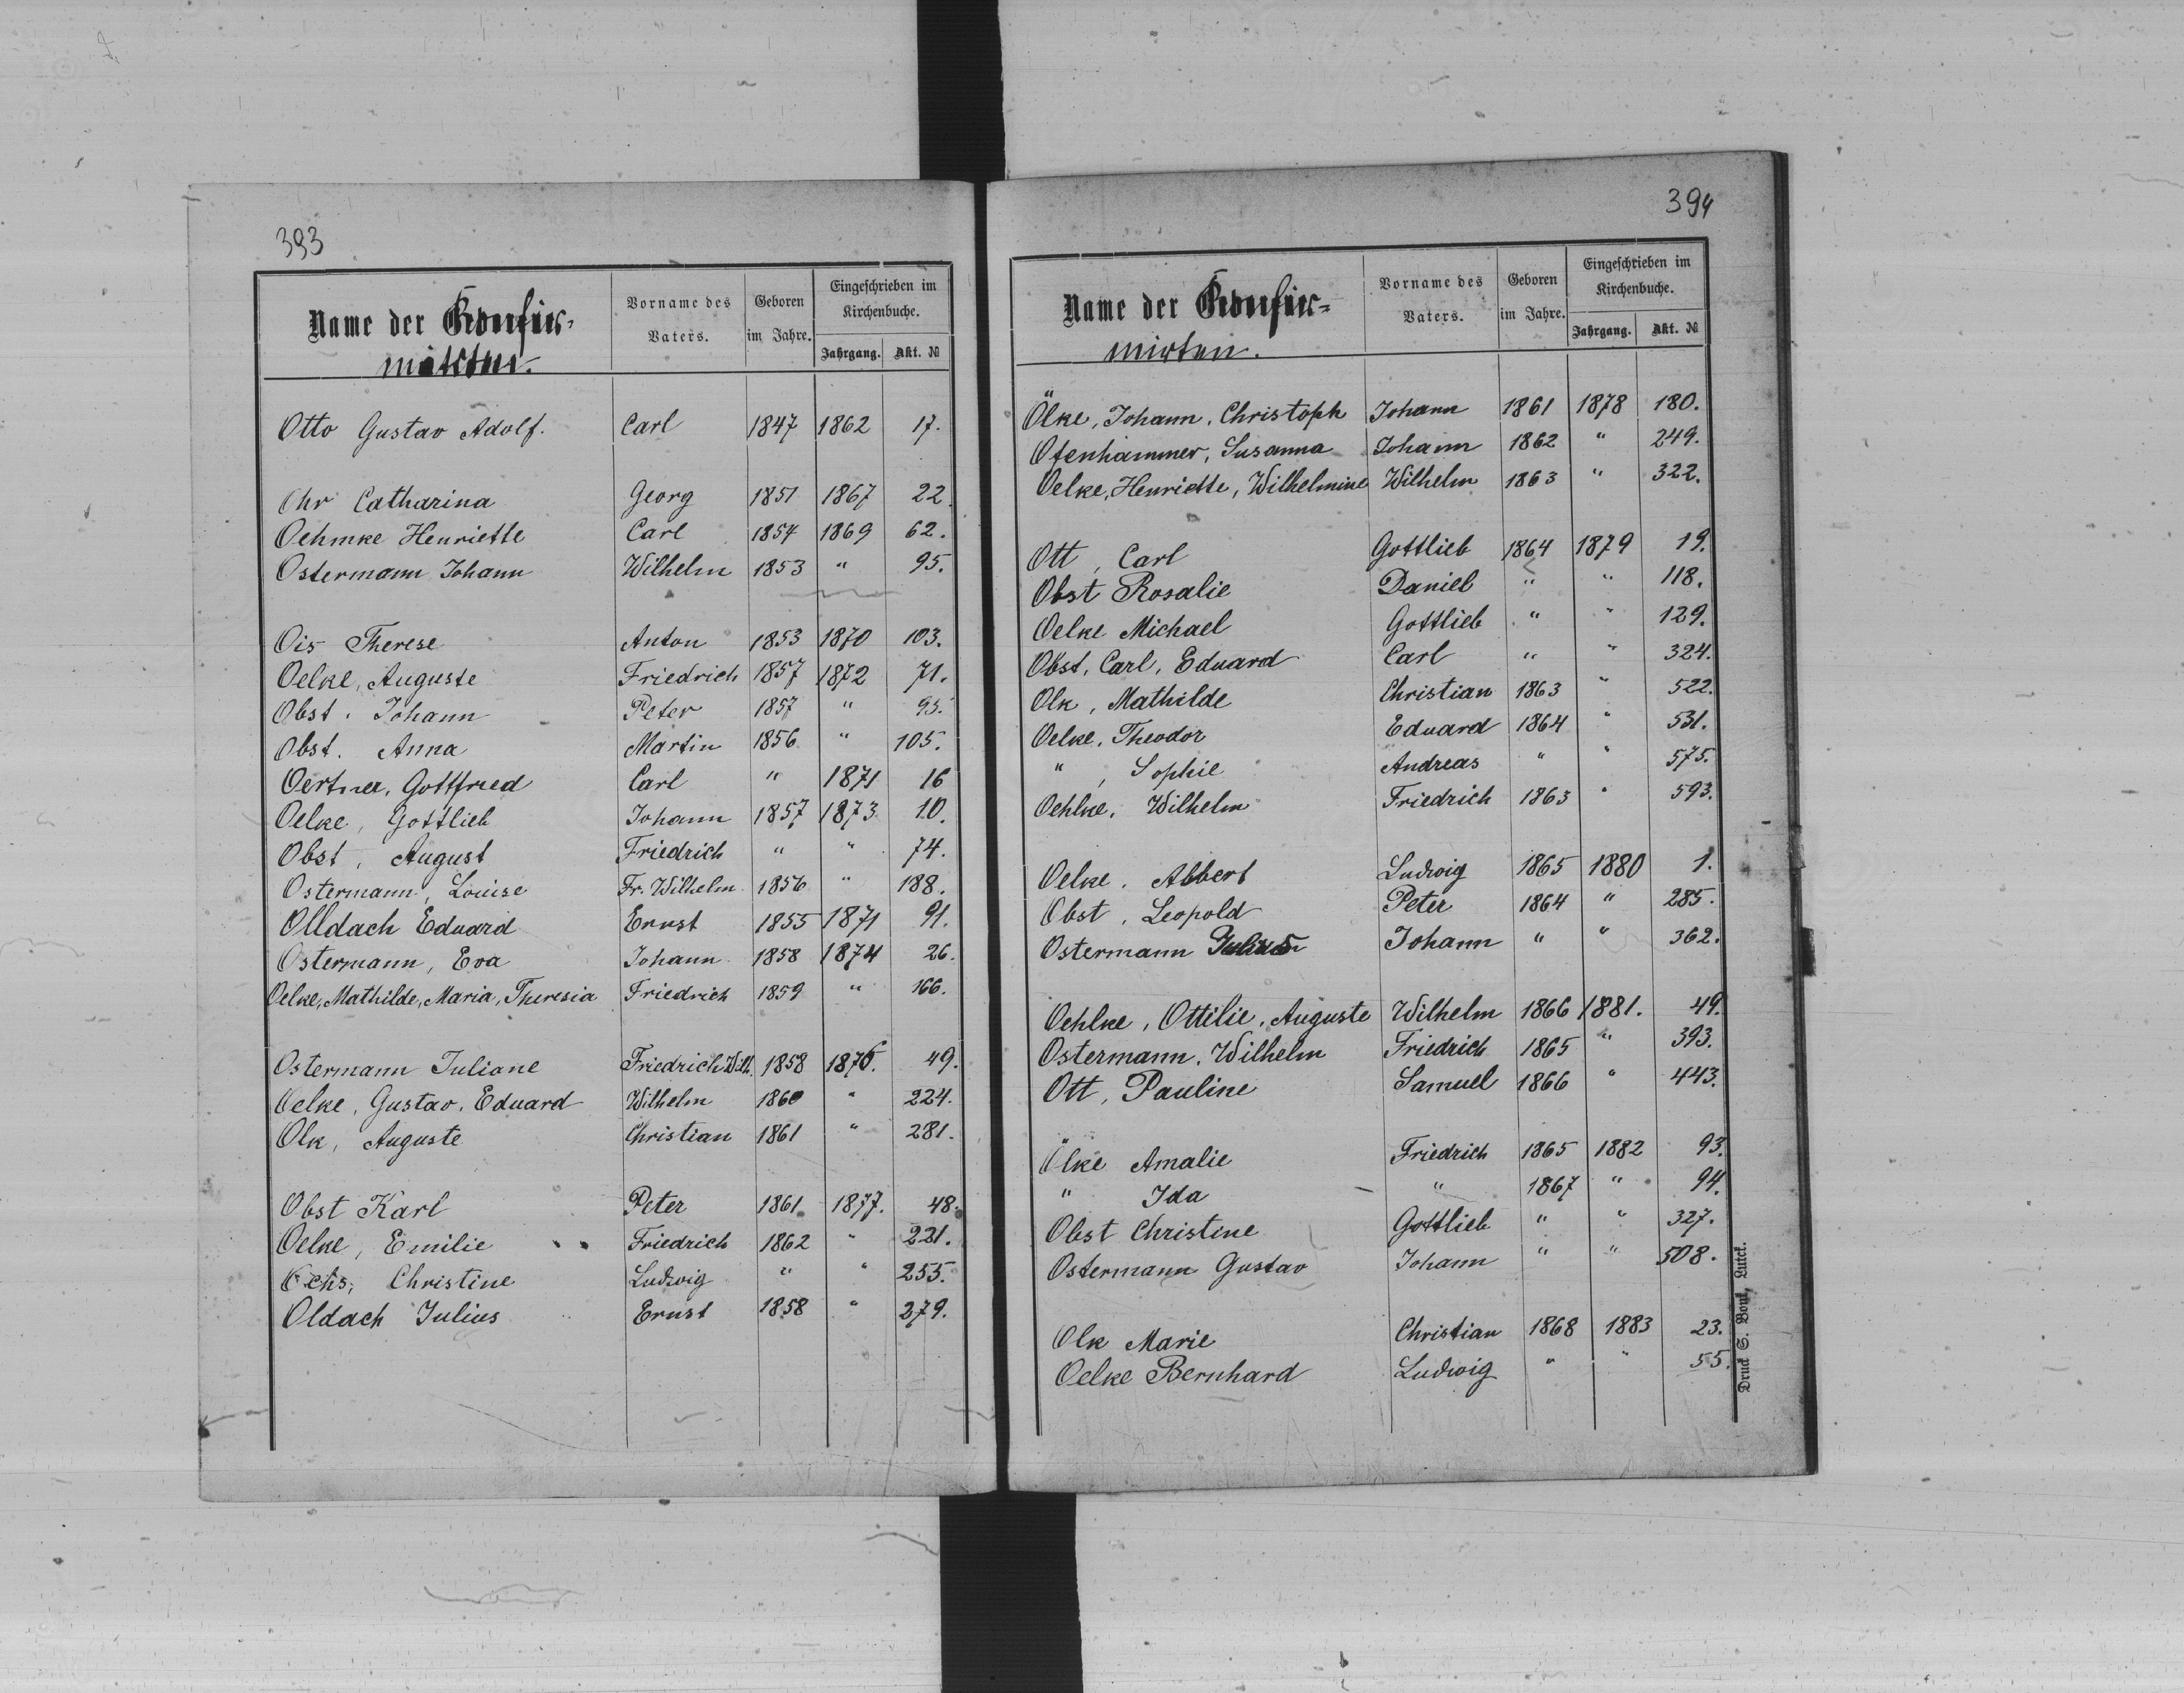 393
Name der Konfir-
mirten.
Vorname des Vaters.
Geboren im Jahre.
Eingeschrieben im Kirchenbuche.
Jahrgang. Akt. №
Otto Gustav Adolf. Carl 1847 1862 17.
Ohr Catharina Georg 1851 1867 22.
Oehmke Henriette Carl 1854 1869 62.
Ostermann Johann Wilhelm 1853 " 95.
Ois Therese Anton 1853 1870 103.
Oelke, Auguste Friedrich 1857 1872 71.
Obst. Johann Peter 1857 " 95.
Obst. Anna Martin 1856 " 105.
Oertner, Gottfried Carl " 1871 16
Oelke, Gottlieb Johann 1857 1873 10.
Obst, August Friedrich " " 74.
Ostermann, Louise Fr. Wilhelm 1856 " 188.
Olldach Eduard Ernst 1855 1871 91.
Ostermann, Eva Johann 1858 1874 26.
Oelke, Mathilde, Maria, Theresia Friedrich 1859 " 166.
Ostermann Juliane Friedrich Wilh. 1858 1876. 49.
Oelke, Gustav. Eduard Wilhelm 1860 " 224.
Olk, Auguste Christian 1861 " 281.
Obst Karl Peter 1861 1877. 48.
Oelke, Emilie Friedrich 1862 " 221.
Ochs, Christine Ludwig " " 255.
Oldach Julius Ernst 1858 " 279.
394
Name der Konfir-
mirten.
Vorname des Vaters.
Geboren im Jahre.
Eingeschrieben im Kirchenbuche.
Jahrgang. Akt. №
Ölke, Johann, Christoph Johann 1861 1878 180.
Ofenhammer, Susanna Johann 1862 " 249.
Oelke, Henriette, Wilhelmine Wilhelm 1863 " 322.
Ott, Carl Gottlieb 1864 1879 19.
Obst Rosalie Daniel " " 118.
Oelke Michael Gottlieb " " 129.
Obst, Carl, Eduard Carl " " 324.
Olk, Mathilde Christian 1863 " 522.
Oelke, Theodor Eduard 1864 " 531.
", Sophie Andreas " " 575.
Oehlke, Wilhelm Friedrich 1863 " 593.
Oelke, Albert Ludwig 1865 1880 1.
Obst, Leopold Peter 1864 " 285.
Ostermann Julius Johann " " 362.
Oehlke, Ottilie, Auguste Wilhelm 1866 1881. 49.
Ostermann, Wilhelm Friedrich 1865 " 393.
Ott, Pauline Samuel 1866 " 443.
Ölke Amalie Friedrich 1865 1882 93.
" Ida " 1867 " 94.
Obst Christine Gottlieb " " 327.
Ostermann Gustav Johann " " 508.
Olk Marie Christian 1868 1883 23.
Oelke Bernhard Ludwig " " 55.
Druck S. Bonk, Luck.